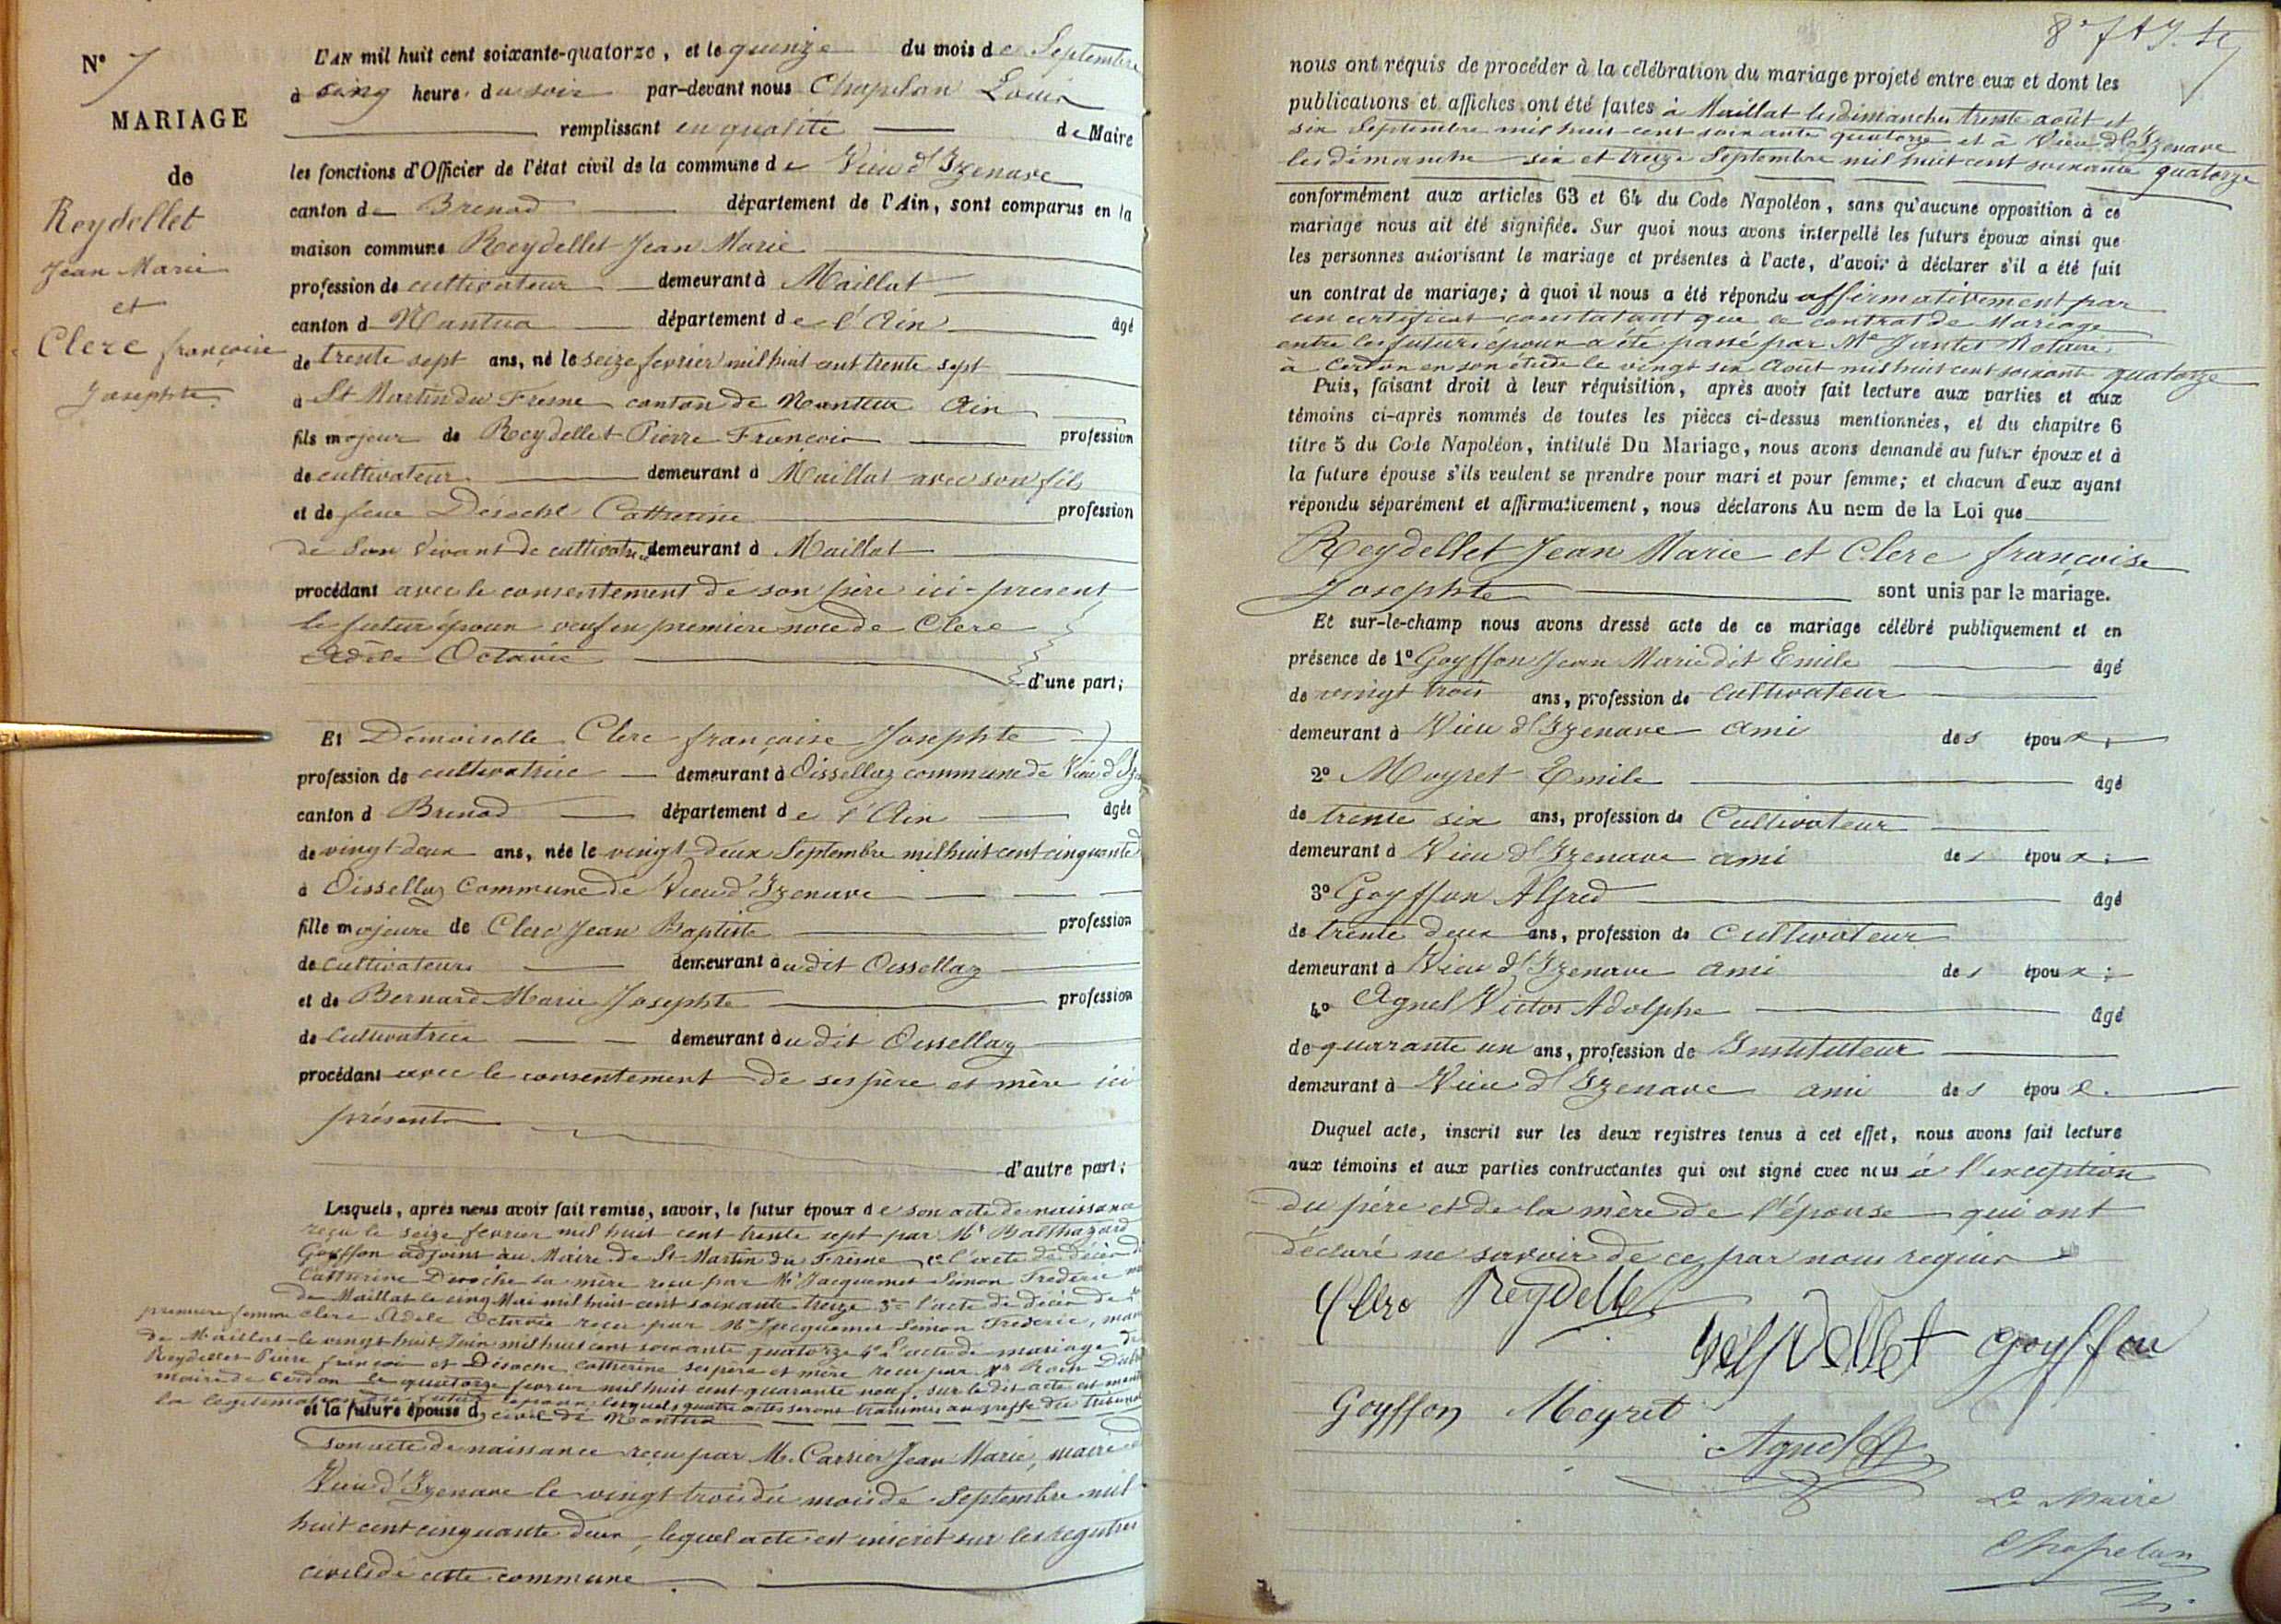 N° 7
MARIAGE
de
Reydellet
Jean Marie
et
Clerc françoise
Josephte
L'AN mil huit cent soixante-quatorze, et le quinze du mois de Septembre
à cinq heure du soir par-devant nous Chapelan Louis
remplissant en qualité de Maire
les fonctions d'Officier de l'état civil de la commune de Vieu d'Izenave
canton de Brenod département de l'Ain, sont comparus en la
maison commune Reydellet Jean Marie
profession de cultivateur demeurant à Maillat
canton d Nantua département de l'Ain âgé
de trente sept ans, né le seize fevrier mil huit cent trente sept
à St Martin du Fresne canton de Nantua Ain
fils majeur de Reydellet Pierre François profession
de cultivateur demeurant à Maillat avec son fils
et de feue Déroche Catherine profession
de son vivant de cultivatrice demeurant à Maillat
procédant avec le consentement de son père ici-présent
le futur époux veuf en premiere noce de Clerc
Adèle Octavie
d'une part;
Et Demoiselle Clerc françoise Josephte
profession de cultivatrice demeurant à Oissellaz commune de Vieu d'Ize
canton d Brenod département de l'Ain âgée
de vingt deux ans, née le vingt deux Septembre mil huit cent cinquante d
à Oissellaz Commune de Vieu d'Izenave
fille majeure de Clerc Jean Baptiste profession
de cultivateur demeurant audit Oissellaz
et de Bernard Marie Josephte profession
de cultivatrice demeurant audit Oissellaz
procédant avec le consentement de ses père et mère ici
présents
d'autre part;
Lesquels, après nous avoir fait remise, savoir, le futur époux de son acte de naissance
reçu le seize fevrier mil huit cent trente sept par Mr Balthazard
Goyffon adjoint au Maire de St Martin du Fresne, 2° l'acte de décès de
Catherine Déroche sa mère reçu par Mr Jacquemet Simon Frederic
de Maillat le cinq Mai mil huit cent soixante treize 3° l'acte de décès de
premiere femme Clerc Adele Octavie reçu par Mr Jacquemet Simon Frederic, maire
de Maillat le vingt huit Juin mil huit cent soixante quatorze 4° L'acte de mariage de
Reydellet Pierre françois et Déroche Catherine ses père et mère reçu par Mr
maire de Cerdon le quatorze fevrier mil huit cent quarante neuf, sur le dit acte est
la legitimation du futur époux lesquels quatre actes seront transmis au greffe du tribunal
et la future épouse d civil de Nantua
son acte de naissance reçu par M. Carrier Jean Marie, maire d
Vieu d'Izenave le vingt trois du mois de Septembre mil
huit cent cinquante deux, lequel acte est inscrit sur les registres
civils de cette commune.
nous ont requis de procéder à la célébration du mariage projeté entre eux et dont les
publications et affiches ont été faites à Maillat les dimanches trente août et
six Septembre mil huit cent soixante quatorze et à Vieu d'Izenave
les dimanche six et treize Septembre mil huit cent soixante quatorze
conformément aux articles 63 et 64 du Code Napoléon, sans qu'aucune opposition à ce
mariage nous ait été signifiée. Sur quoi nous avons interpellé les futurs époux ainsi que
les personnes autorisant le mariage et présentes à l'acte, d'avoir à déclarer s'il a été fait
un contrat de mariage; à quoi il nous a été répondu affirmativement par
un certificat constatant que le contrat de Mariage
entre les futurs époux a été passé par Me Jantet Notaire
à Cerdon en son étude le vingt six Août mil huit cent soixante quatorze
Puis, faisant droit à leur réquisition, après avoir fait lecture aux parties et aux
témoins ci-après nommés de toutes les pièces ci-dessus mentionnées, et du chapitre 6
titre 5 du Code Napoléon, intitulé Du Mariage, nous avons demandé au futur époux et à
la future épouse s'ils veulent se prendre pour mari et pour femme; et chacun d'eux ayant
répondu séparément et affirmativement, nous déclarons Au nom de la Loi que
Reydellet Jean Marie et Clerc françoise
Josephte sont unis par le mariage.
Et sur-le-champ nous avons dressé acte de ce mariage célébré publiquement et en
présence de 1° Goyffon Jean Marie dit Emile âgé
de vingt trois ans, profession de Cultivateur
demeurant à Vieu d'Izenave ami des époux;
2° Moyret Emile âgé
de trente six ans, profession de Cultivateur
demeurant à Vieu d'Izenave ami des époux;
3° Goyffon Alfred âgé
de trente deux ans, profession de Cultivateur
demeurant à Vieu d'Izenave ami des époux;
4° Agnel Victor Adolphe âgé
de quarante un ans, profession de Instituteur
demeurant à Vieu d'Izenave ami des époux.
Duquel acte, inscrit sur les deux registres tenus à cet effet, nous avons fait lecture
aux témoins et aux parties contractantes qui ont signé avec nous à l'exception
du père et de la mère de l'épouse qui ont
déclaré ne savoir de ce par nous requis
Clerc Reydellet
Reydellet Goyffon
Goyffon Moyret
Agnel
Le Maire
Chapelan